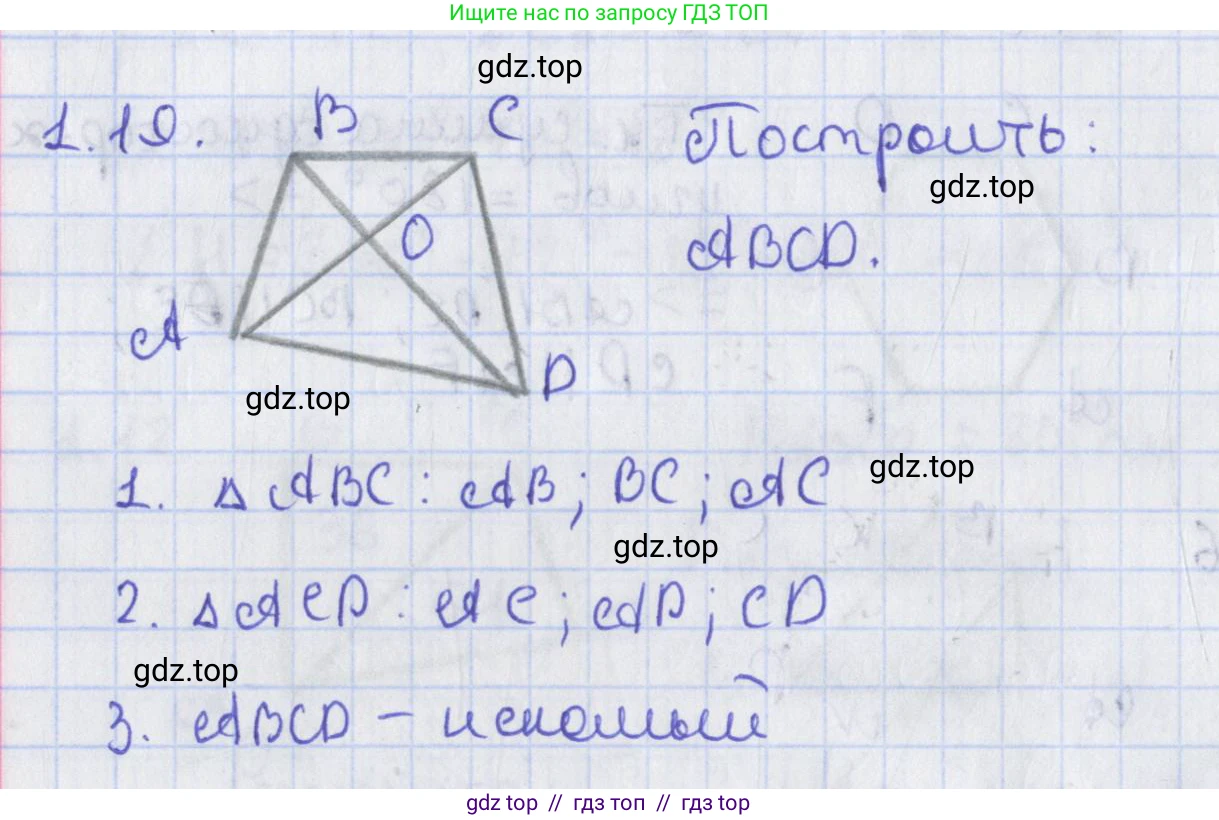 Ищите нас по запросу ГДЗ ТОП
gdz.top
1.19.
B C
Построить:
gdz.top
O
ABCD.
A
D
gdz.top
gdz.top
1. △ ABC : AB ; BC ; AC
gdz.top
2. △ ACD : AC ; AD ; CD
gdz.top
3. ABCD – искомый
gdz top // гдз топ // gdz top